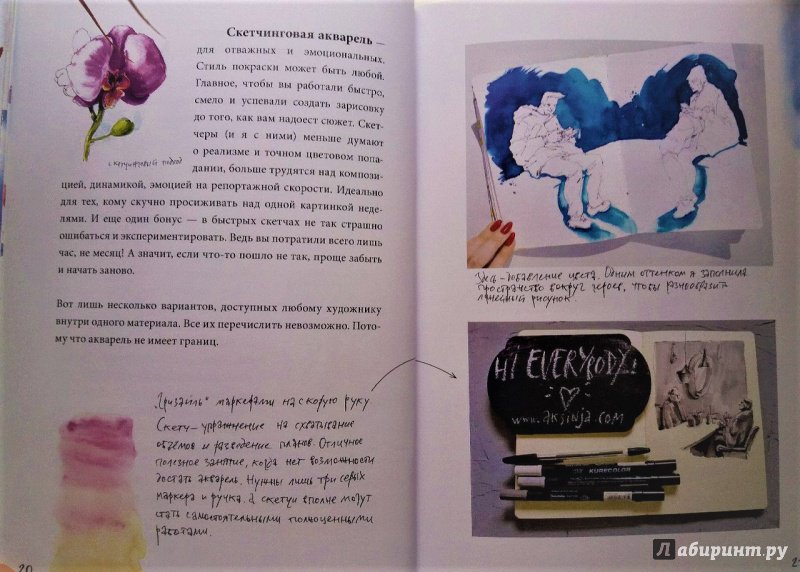 Скетчинговая акварель –
для отважных и эмоциональных.
Стиль покраски может быть любой.
Главное, чтобы вы работали быстро,
смело и успевали создать зарисовку
до того, как вам надоест сюжет. Скет-
черы (и я с ними) меньше думают
о реализме и точном цветовом попа-
дании, больше трудятся над компози-
цией, динамикой, эмоцией на репортажной скорости. Идеально
для тех, кому скучно просиживать над одной картинкой неде-
лями. И еще один бонус — в быстрых скетчах не так страшно
ошибаться и экспериментировать. Ведь вы потратили всего лишь
час, не месяц! А значит, если что-то пошло не так, проще забыть
и начать заново.
скетчинговый подход
Вот лишь несколько вариантов, доступных любому художнику
внутри одного материала. Все их перечислить невозможно. Пото-
му что акварель не имеет границ.
"Гризайль" маркерами на скорую руку.
Скетч – упражнение на схватывание
объёмов и разведение планов. Отличное
полезное занятие, когда нет возможности
достать акварель. Нужны лишь три серых
маркера и ручка. А скетчи вполне могут
стать самостоятельными полноценными
работами.
20
Здесь – добавление цвета. Одним оттенком я заполнила
пространство вокруг героев, чтобы разнообразить
линейный рисунок.
HI EVERYBODY!
www.aksinja.com
KURECOLOR
Лабиринт.ру